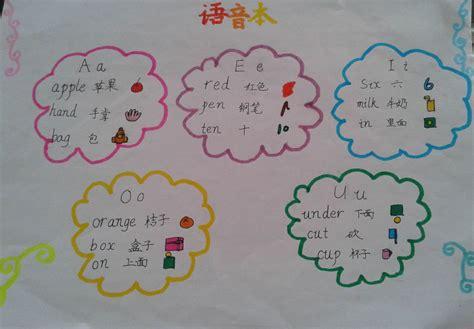 语音本
A a
apple 苹果
hand 手掌
bag 包
E e
red 红色
pen 钢笔
ten 十 10
I t
Six 六 6
milk 牛奶
in 里面
O o
orange 桔子
box 盒子
on 上面
U u
under 下面
cut 砍
cup 杯子